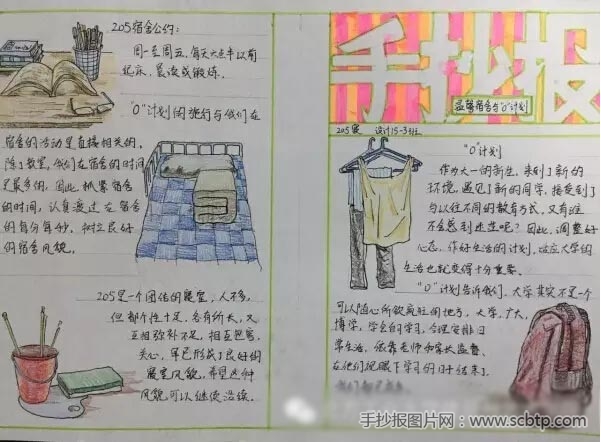 205宿舍公约:
周一至周五,每天六点半以前
起床,晨读或锻炼。
"0"计划的施行与我们在
宿舍的活动是直接相关的,
除了教室,我们在宿舍的时间
是最多的,因此,抓紧宿舍
的时间,认真渡过在宿舍
的每分每秒,树立良好
的宿舍风貌。
205是一个团结的寝室,人不多,
但都个性十足,各有所长,又
互相弥补不足,相互包容,
关心,早已形成了良好的
寝室风貌,希望这种
风貌可以继续沿续。
手抄报
温馨宿舍与"0"计划
205寝 设计15-3班
"0"计划
作为大一的新生,来到了新的
环境,遇见了新的同学,接受到了
与以往不同的教育方式,又有谁
不会感到迷茫呢?因此,调整好
心态,作好生活的计划,适应大学的
生活也就变得十分重要。
"0"计划告诉我们,大学其实不是一个
可以随心所欲疯狂的地方,大学,广大,
博学,学会自学习,合理安排日
常生活,依靠老师和家长监督,
在他们眼下学习的日子结束了,
手抄报图片网:www.scbtp.com